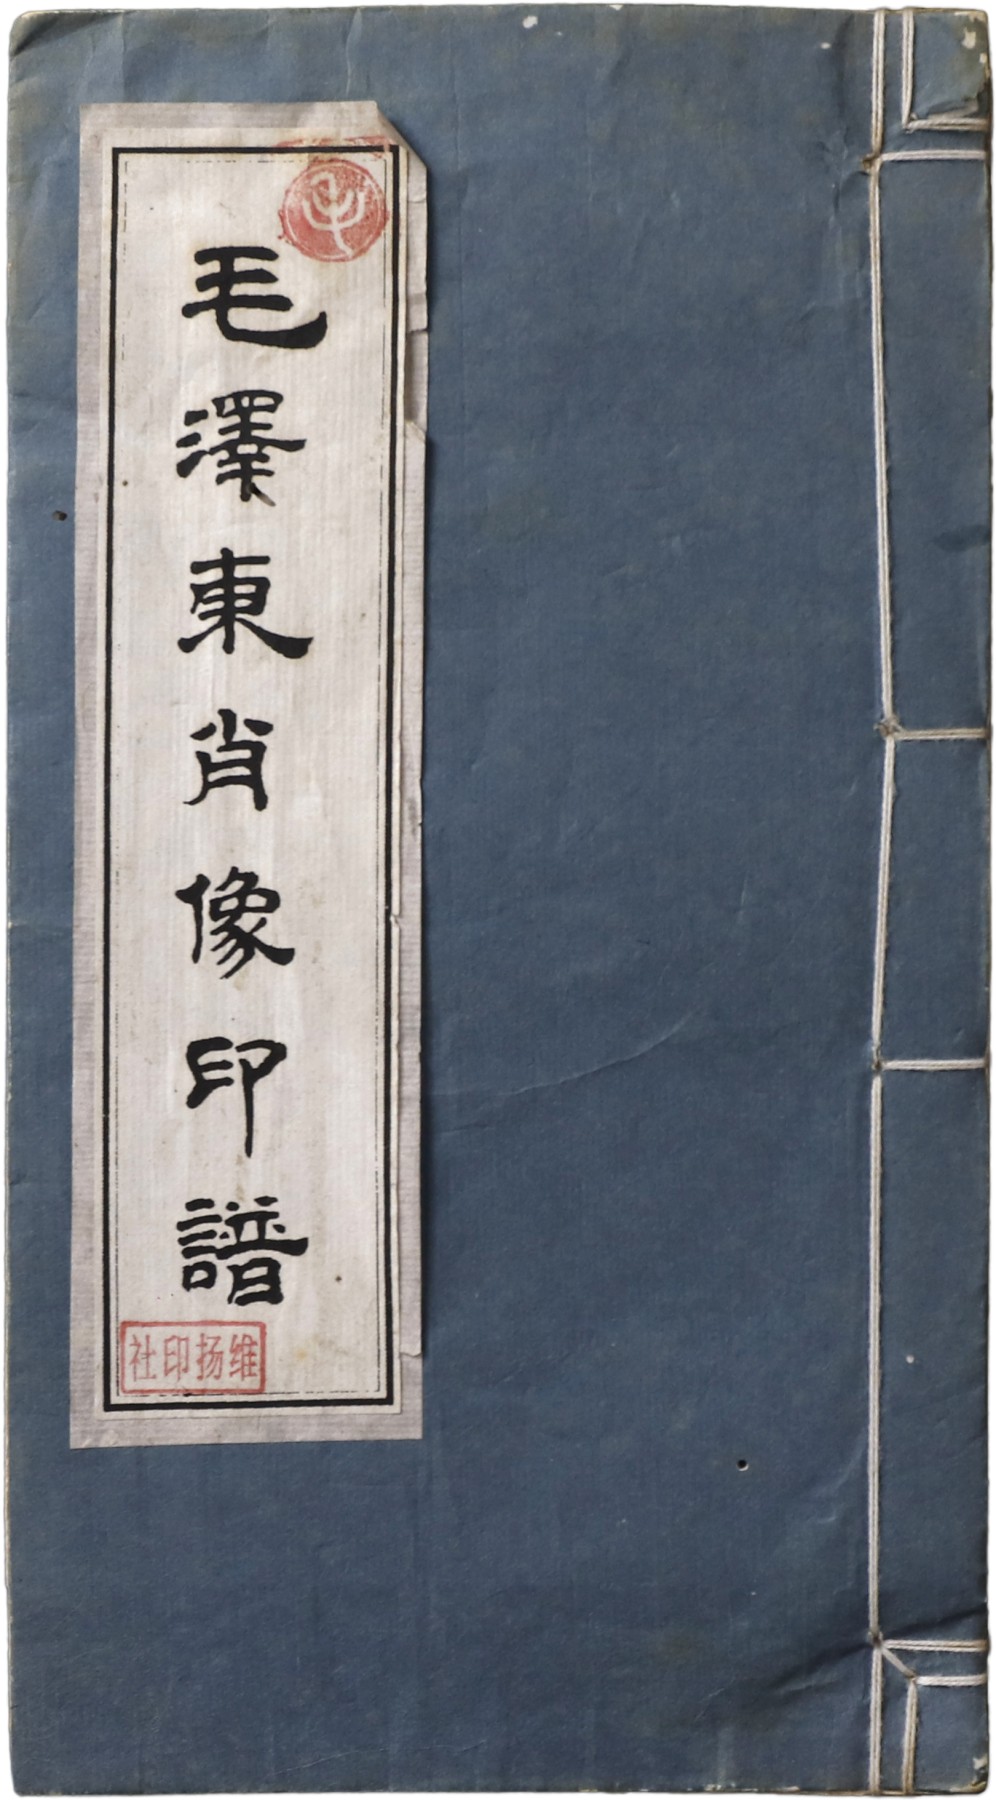 毛澤東肖像印譜
维扬印社